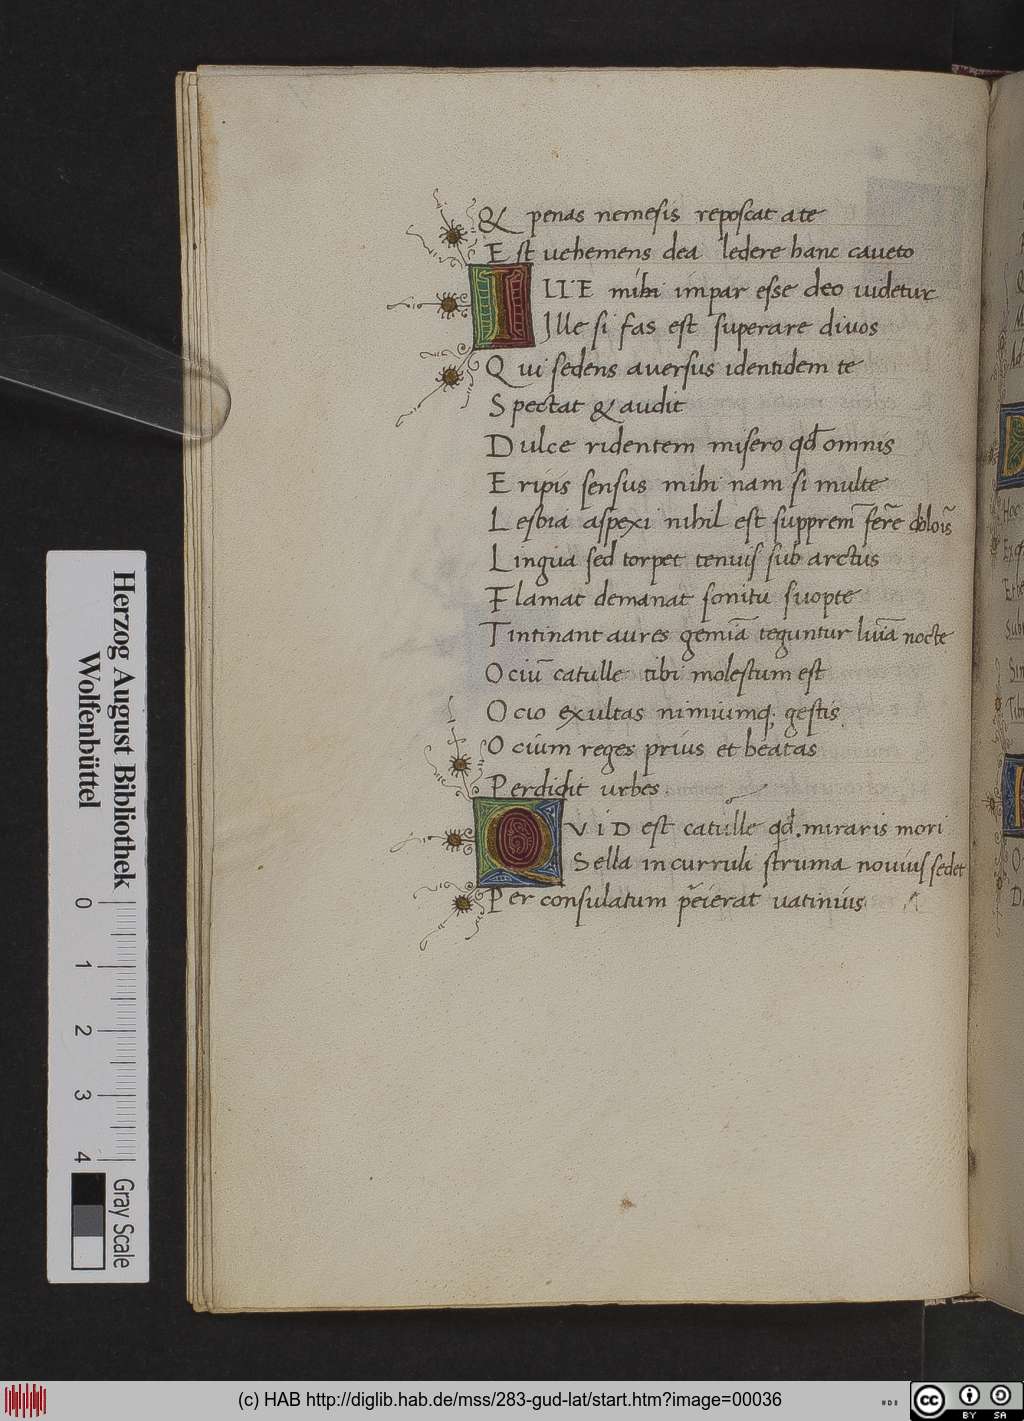 & penas nemesis reposcat a te
Est uehemens dea ledere hanc caueto
ILLE mihi impar esse deo uidetur
Ille si fas est superare diuos
Qui sedens auersus identidem te
Spectat & audit
Dulce ridentem misero qd̄ omnis
Eripis sensus mihi nam si multe
Lesbia aspexi nihil est supprem̄ ferē
Lingua sed torpet tenuis sub arctus
Flamat demanat sonitu suopte
Tintinant aures gemiā teguntur nocte
Ociū catulle tibi molestum est
Ocio exultas nimiumq; gestis
Ocium reges prius et beatas
Perdidit urbes
QVID est catulle qd̄. miraris mori
Sella in curruli struma nouius sedet
Per consulatum peierat uatinius
Herzog August Bibliothek
Wolfenbüttel
0 1 2 3 4
Gray Scale
(c) HAB http://diglib.hab.de/mss/283-gud-lat/start.htm?image=00036
cc BY SA